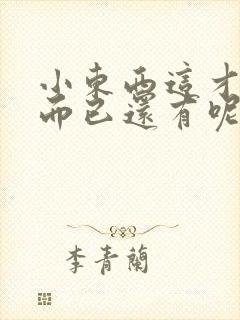 小東西這才
而已還有呢
李青蘭